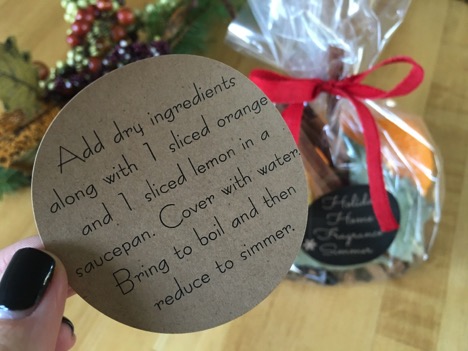 Add dry ingredients
along with 1 sliced orange
and 1 sliced lemon in a
saucepan. Cover with water.
Bring to boil and then
reduce to simmer.
Holiday
Home
Fragrance
Simmer